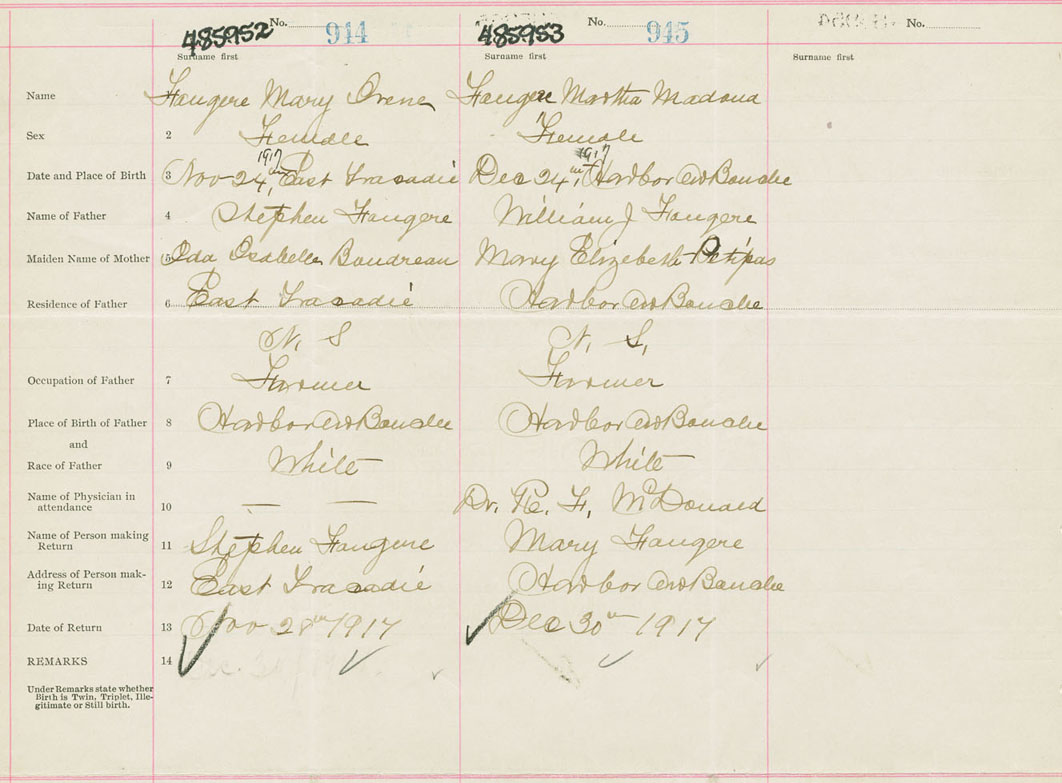 485952 No. 914 485953 No. 945 No.
Surname first Surname first Surname first
Name Fougere Mary Irene Fougere Martha Madona
Sex 2 Female Female
1917 1917
Date and Place of Birth 3 Nov 24th, East Tracadié Dec 24th, Harbor au Bouche
Name of Father 4 Stephen Fougere William J Fougere
Maiden Name of Mother 5 Ida Isabelle Boudreau Mary Elizabeth Petipas
Residence of Father 6 East Tracadié Harbor au Bouche
N. S N. S.
Occupation of Father 7 Farmer Farmer
Place of Birth of Father 8 Harbor au Bouche Harbor au Bouche
and
Race of Father 9 White White
Name of Physician in
attendance 10 — — Dr. R. F. McDonald
Name of Person making
Return 11 Stephen Fougere Mary Fougere
Address of Person mak-
ing Return 12 East Tracadié Harbor au Bouche
Date of Return 13 Nov 28th 1917 Dec 30th 1917
REMARKS 14
Under Remarks state whether
Birth is Twin, Triplet, Ille-
gitimate or Still birth.